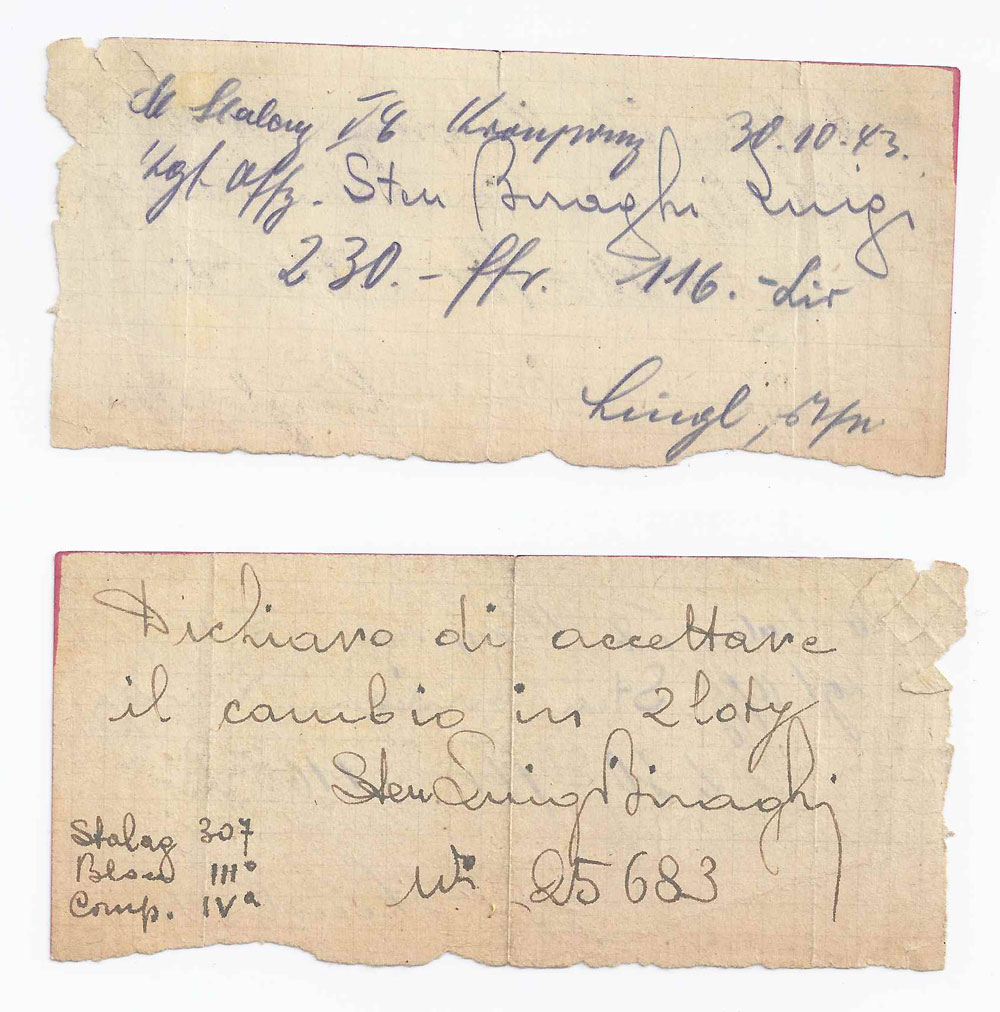 M Stalag I E Kronprinz 30.10.43.
Kgf. Offz. Sten Biraghi Luigi
230.- ffr. 116.- Lir
Lingl,
Dichiaro di accettare
il cambio in Zloty
Sten Luigi Biraghi
Stalag 307
Block III°
Comp. IVª
N° 25683